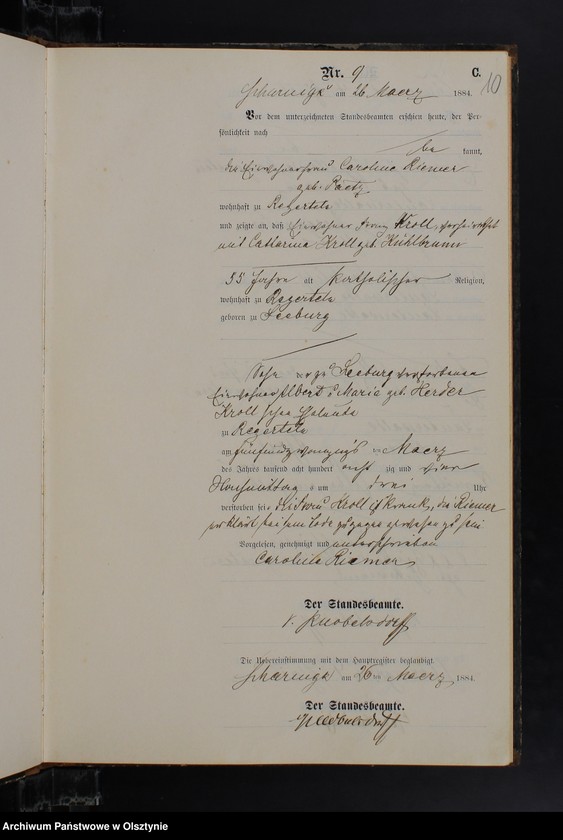 Nr. 9
C.
10
Scharnigk am 26 Maerz 1884.
Vor dem unterzeichneten Standesbeamten erschien heute, der Per-
sönlichkeit nach
be kannt,
die Einwohnerfrau Caroline Riemer
geb. Paetz
wohnhaft zu Regerteln
und zeigte an, daß Einwohner Franz Kroll, verheirathet
mit Catharina Kroll geb. Kühlbrunn
55 Jahre alt katholischer Religion,
wohnhaft zu Regerteln
geboren zu Seeburg
Sohn zu Seeburg verstorbenen
Einwohner Albert u Marie geb. Herder
Kroll schen Eheleute
zu Regerteln
am fünfundzwanzigs ten Maerz
des Jahres tausend acht hundert acht zig und vier
Nachmittag s um drei Uhr
verstorben sei. Die Frau Kroll ist krank, die Riemer
erklärt bei dem Tode zugegen gewesen zu sein
Vorgelesen, genehmigt und unterschrieben
Caroline Riemer
Der Standesbeamte.
v. Knobelsdorff
Die Uebereinstimmung mit dem Hauptregister beglaubigt
Scharnigk am 26 ten Maerz 1884.
Der Standesbeamte.
v Knobelsdorff
Archiwum Państwowe w Olsztynie